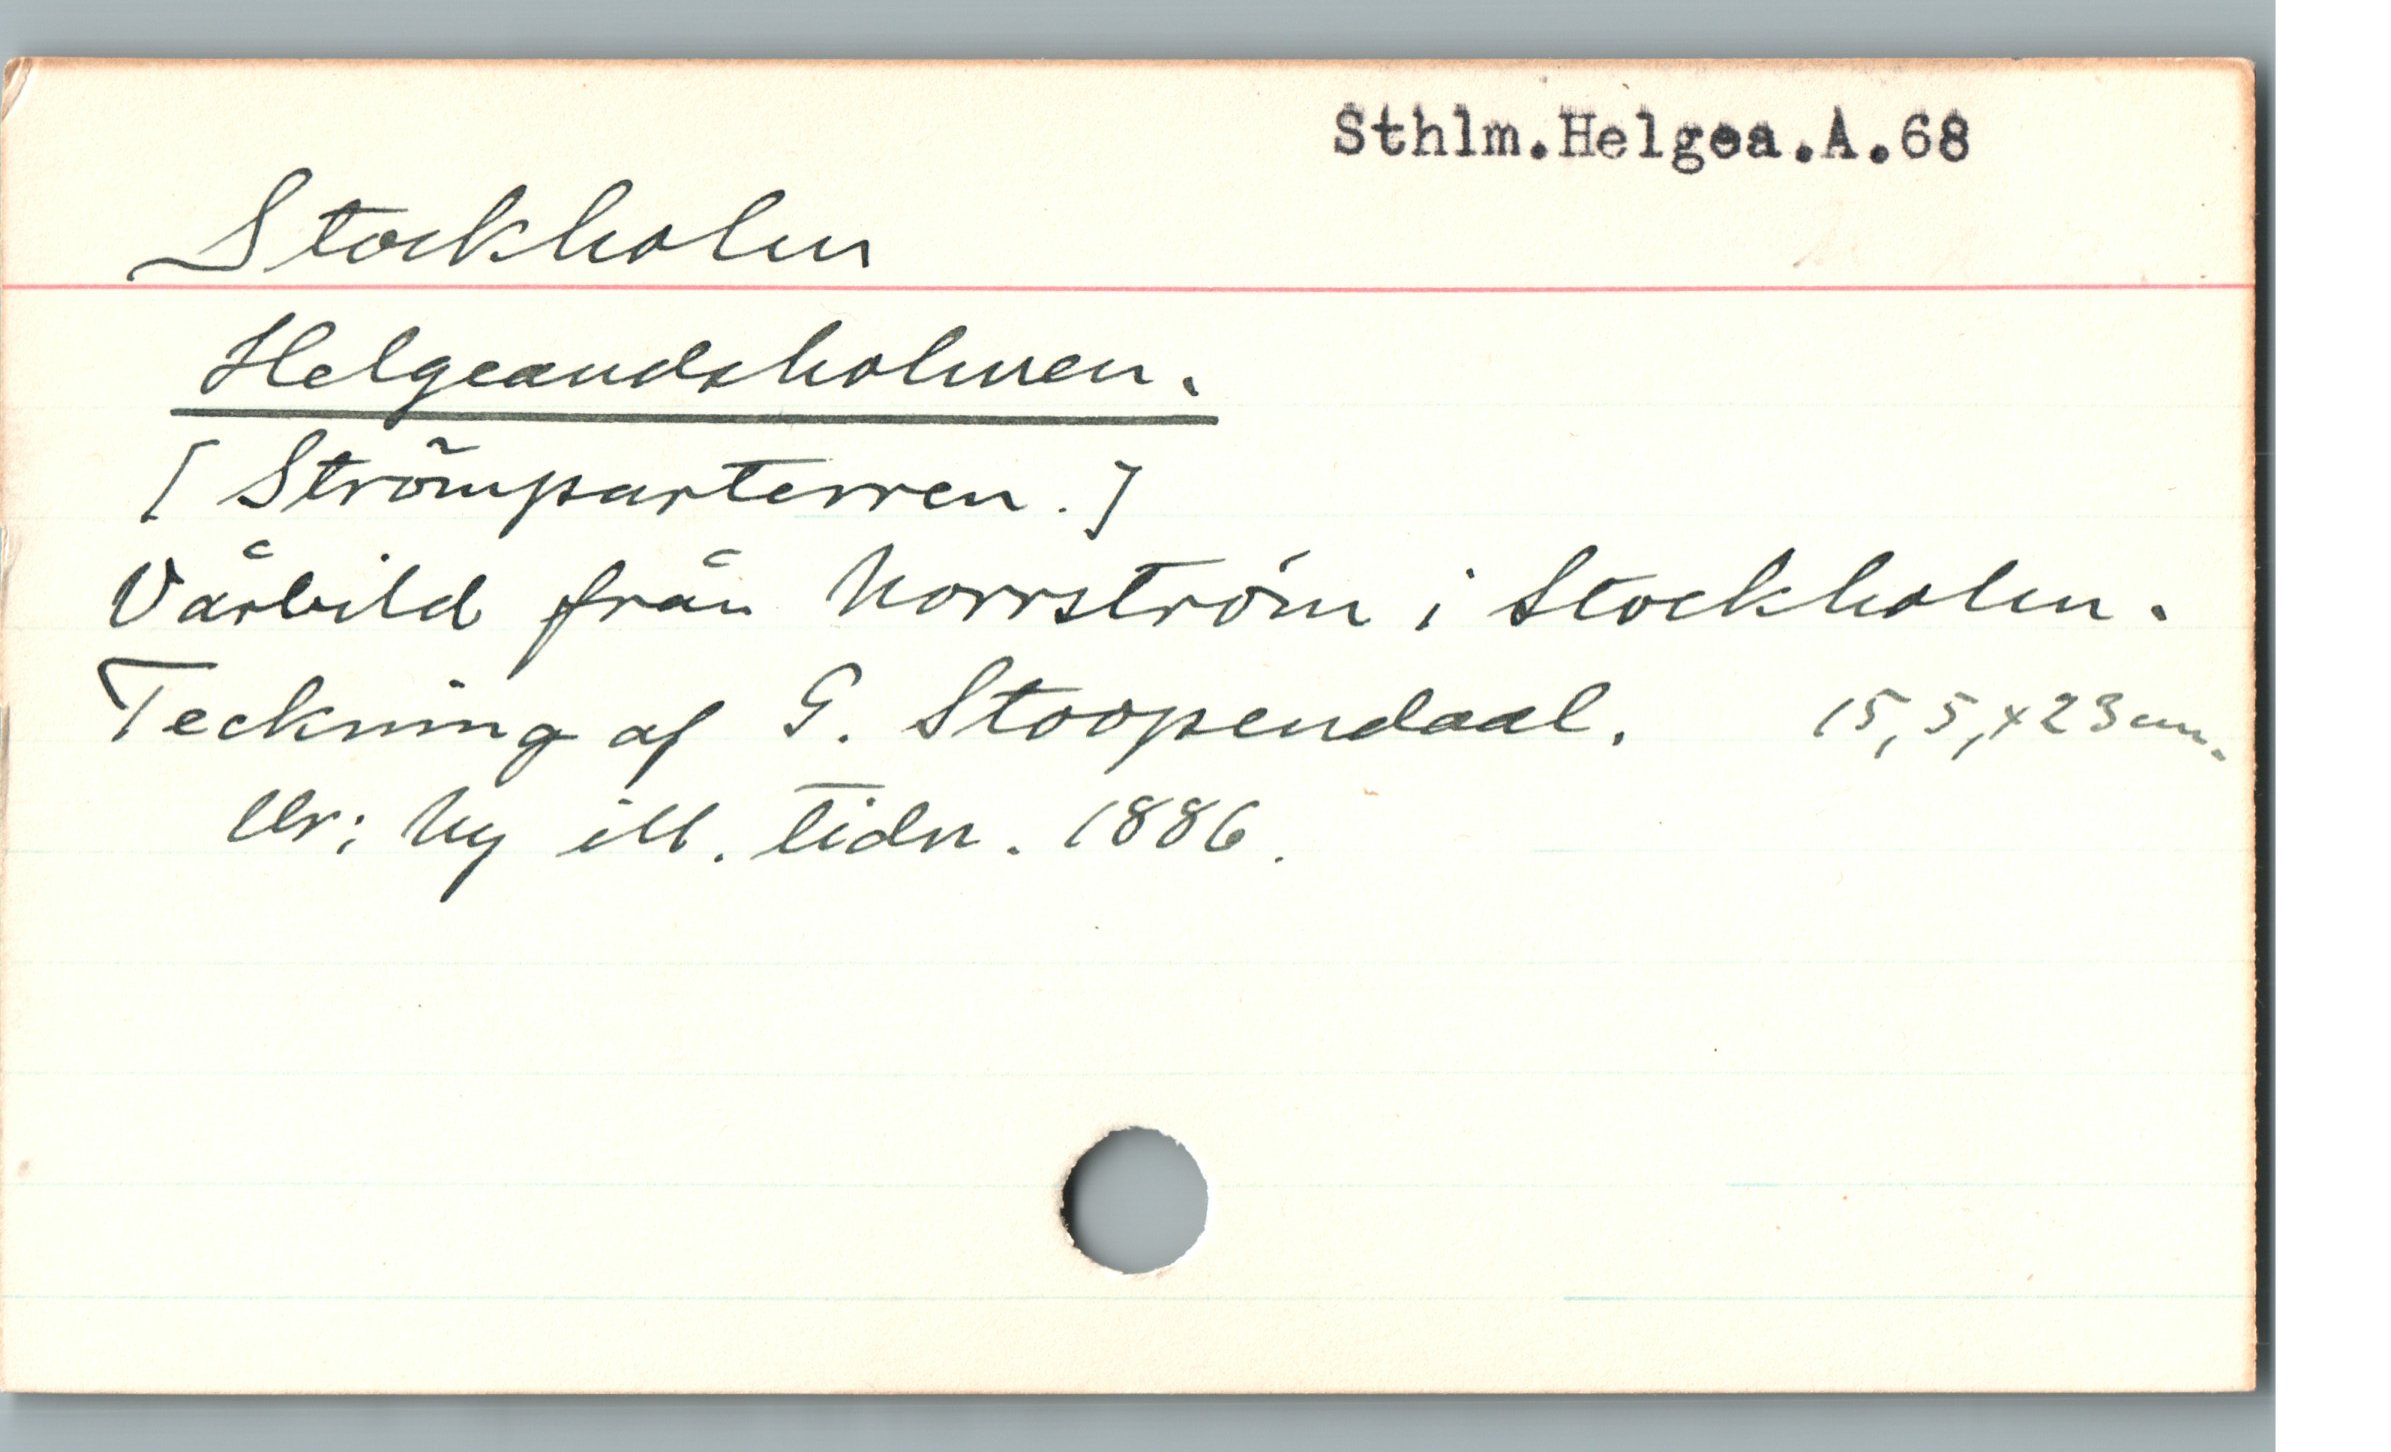 Sthlm.Helgea.A.68
Stockholm
Helgeandsholmen.
[Strömparterren.]
Vårbild från Norrström i Stockholm.
Teckning af G. Stoopendaal. 15,5,x23cm.
Ur: Ny ill. tidn. 1886.